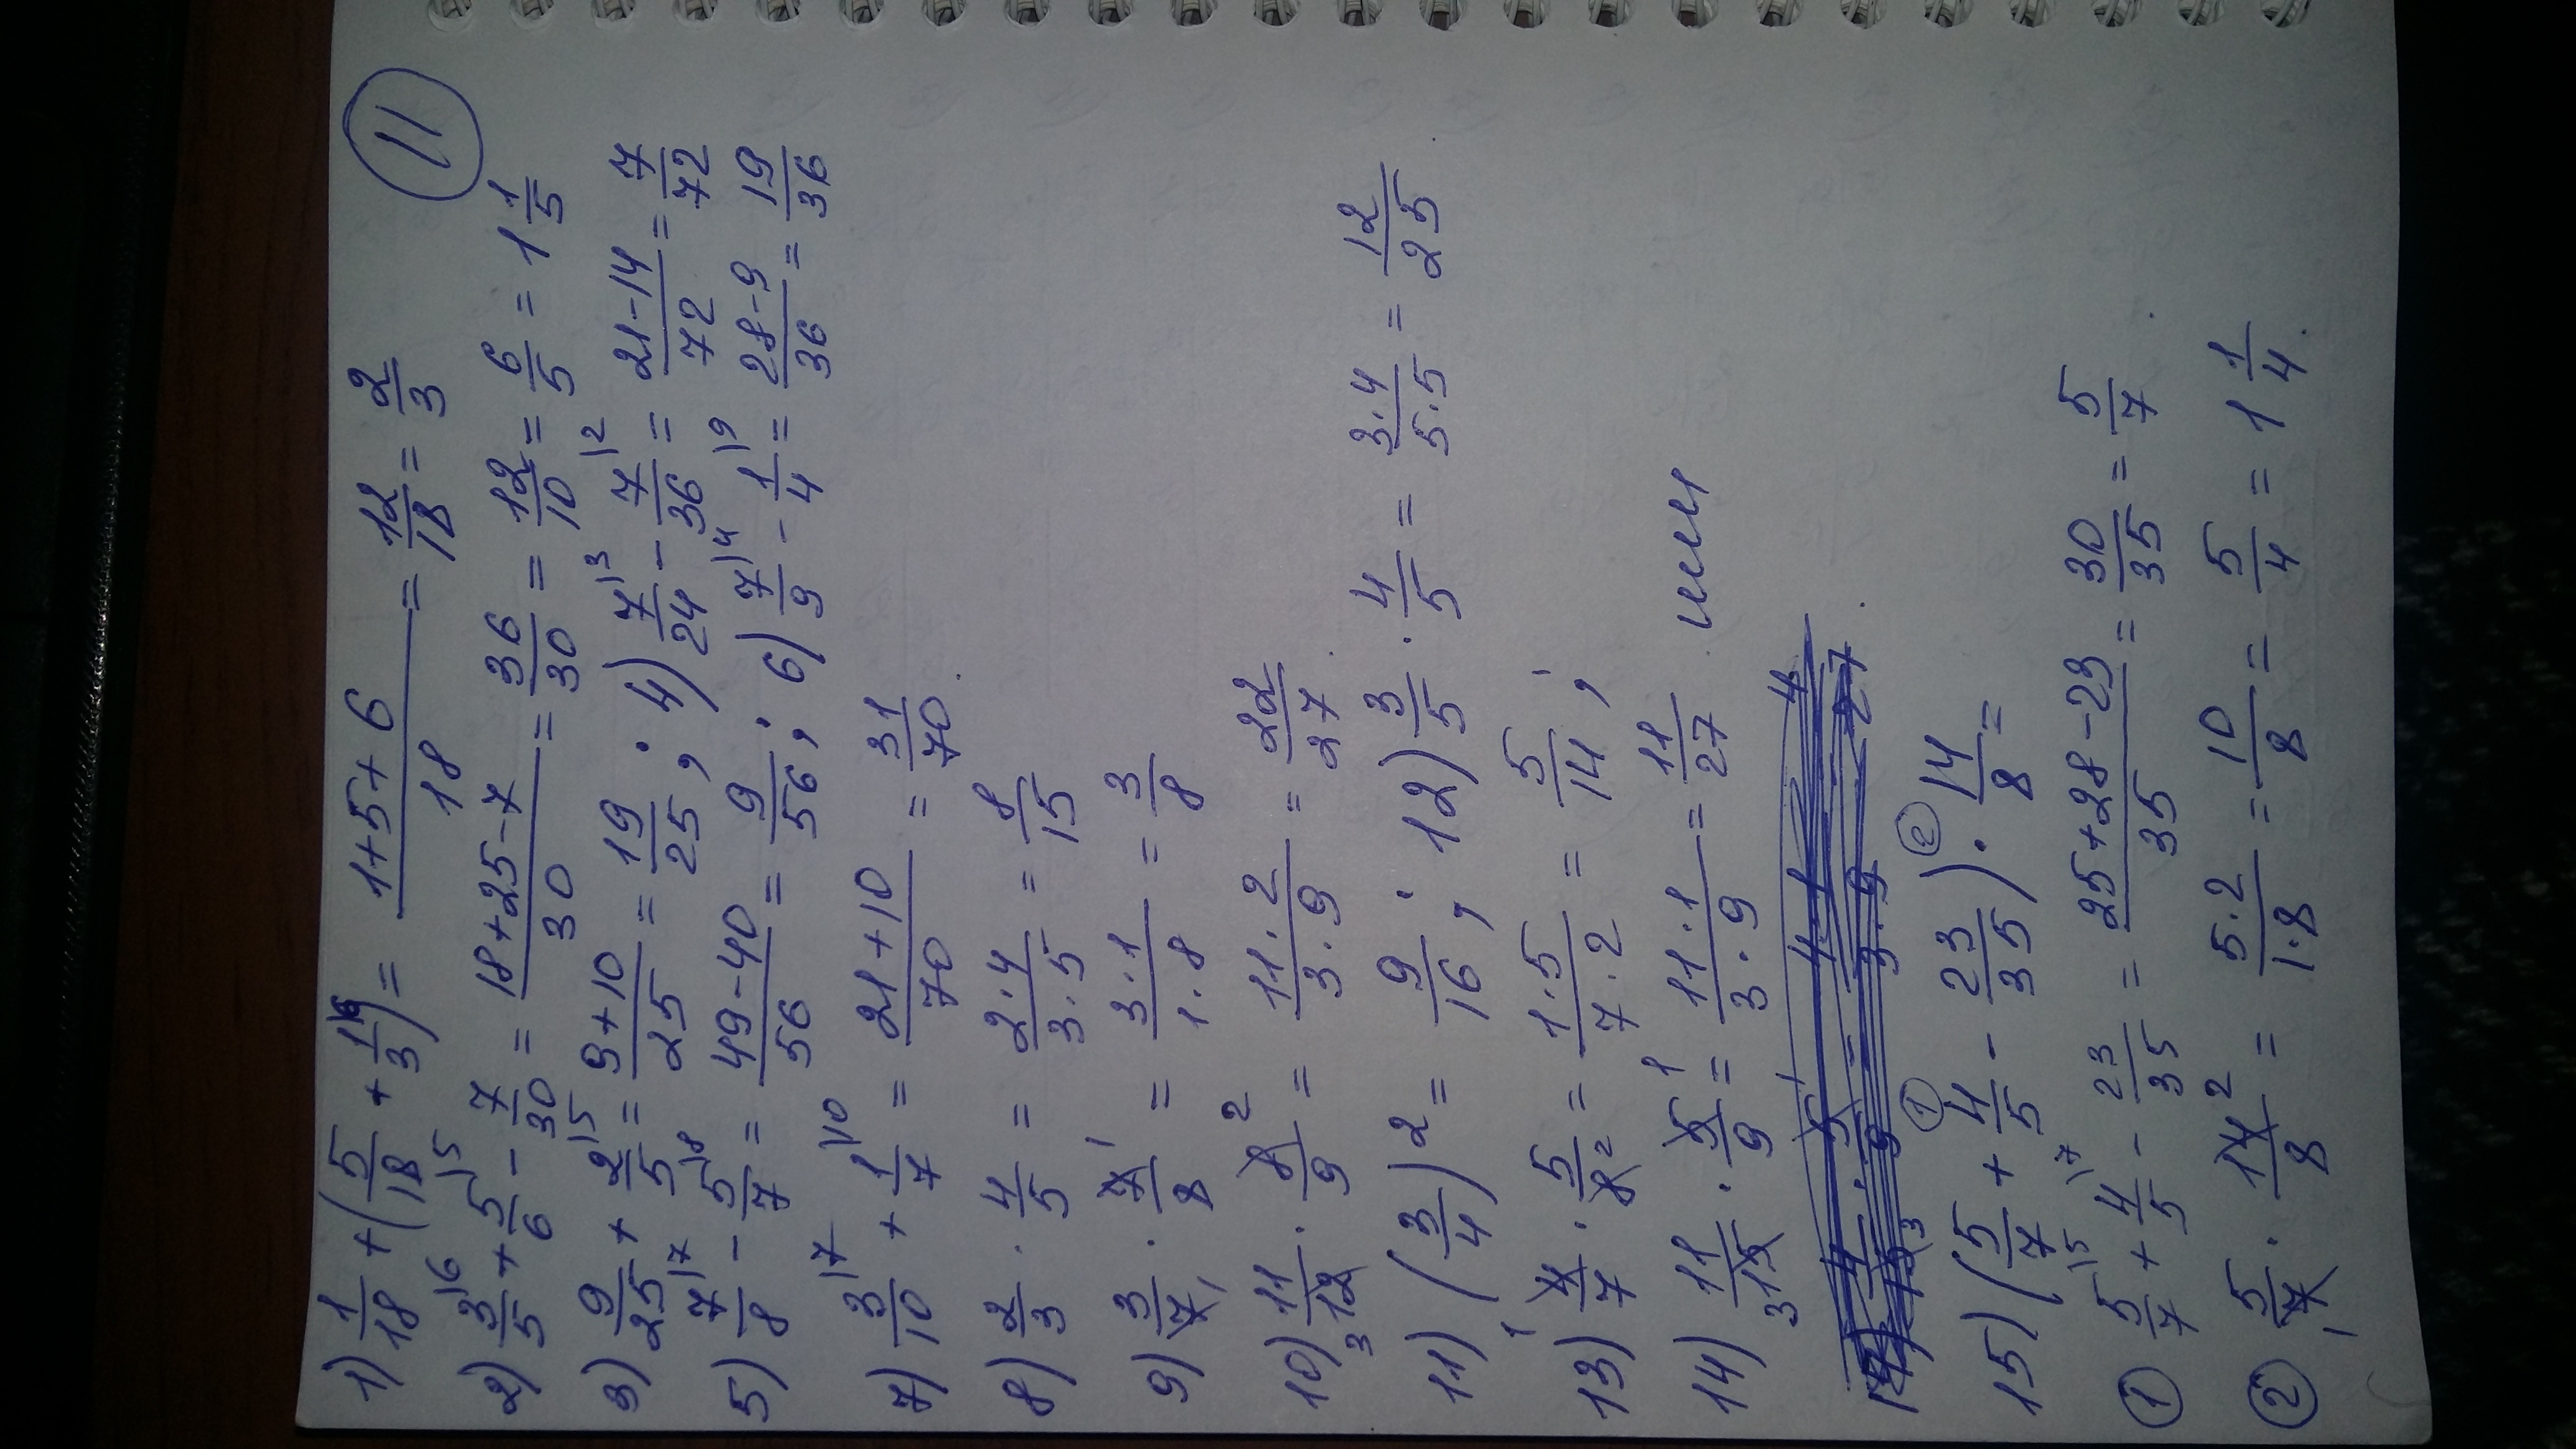 11
1) 1/18 + (5/18 + 1/3|6) = (1+5+6)/18 = 12/18 = 2/3
2) 3/5|6 + 5/6|5 - 7/30 = (18+25-7)/30 = 36/30 = 12/10 = 6/5 = 1 1/5
3) 9/25 + 2/5|5 = (9+10)/25 = 19/25; 4) 7/24|3 - 7/36|2 = (21-14)/72 = 7/72
5) 7/8|7 - 5/7|8 = (49-40)/56 = 9/56; 6) 7/9|4 - 1/4|9 = (28-9)/36 = 19/36
7) 3/10|7 + 1/7|10 = (21+10)/70 = 31/70.
8) 2/3 · 4/5 = (2·4)/(3·5) = 8/15
9) 3/7 1 · 7/8 1 = (3·1)/(1·8) = 3/8
10) 11/12 3 · 8/9 2 = (11·2)/(3·9) = 22/27.
11) (3/4)² = 9/16; 12) 3/5 · 4/5 = (3·4)/(5·5) = 12/25.
13) 1 4/7 · 5/8 2 = (1·5)/(7·2) = 5/14;
14) 11/15 3 · 5/9 1 = (11·1)/(3·9) = 11/27 или
15) (5/7 + ① 4/5 - 23/35) ② · 14/8 =
① 5/7|5 + 4/5|7 - 23/35 = (25+28-23)/35 = 30/35 = 5/7.
② 5/7 1 · 14/8 2 = (5·2)/(1·8) = 10/8 = 5/4 = 1 1/4.